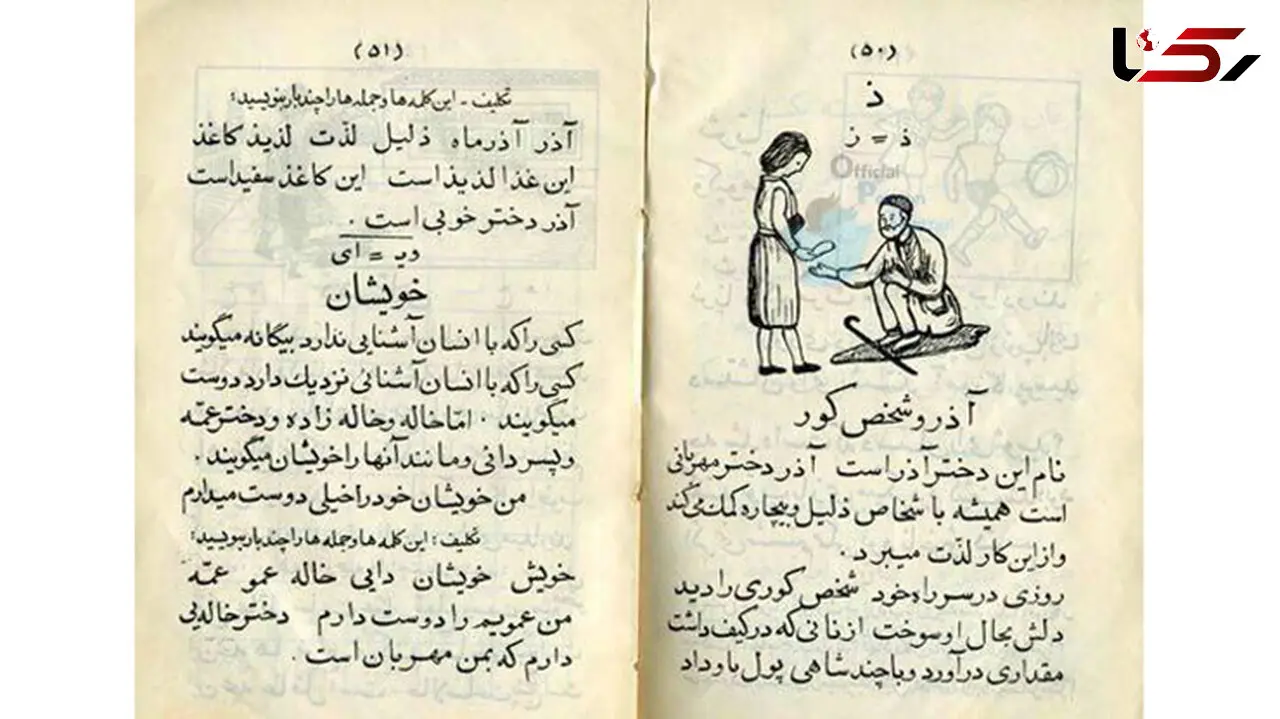 رکنا
(۵۰)
ذ
ذ = ز
Official
آذر و شخص کور
نام این دختر آذر است آذر دختر مهربانی
است همیشه با شخاص ذلیل و بیچاره کمک می‌کند
و از این کار لذّت میبرد .
روزی در سر راه خود شخص کوری را دید
دلش بحال او سوخت از نانی که در کیف داشت
مقداری درآورد و با چند شاهی پول با و داد
(۵۱)
تکلیف - این کلمه ها و جمله ها را چند بار بنویسید :
آذر آذر ماه ذلیل لذّت لذیذ کاغذ
این غذا لذیذ است این کاغذ سفید است
آذر دختر خوبی است .
ویـ = ای
خویشان
کسی را که با انسان آشنایی ندارد بیگانه میگویند
کسی را که با انسان آشنائی نزدیك دارد دوست
میگویند . امّا خاله و خاله زاده و دختر عمّه
و پسر دائی و مانند آنها را خویشان میگویند .
من خویشان خود را خیلی دوست میدارم
تکلیف : این کلمه ها و جمله ها را چند بار بنویسید :
خویش خویشان دایی خاله عمو عمّه
من عمویم را دوست دارم دختر خاله‌یی
دارم که بمن مهربان است .